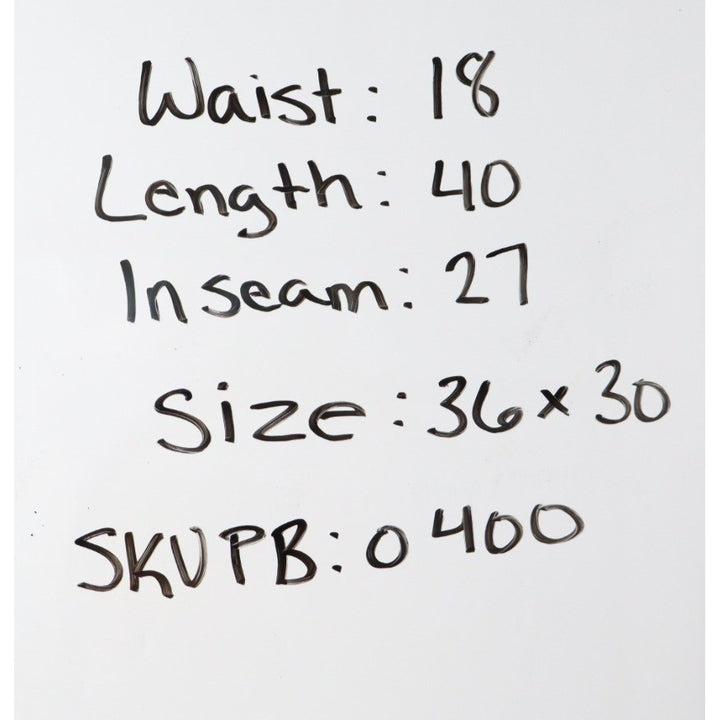 Waist: 18
Length: 40
Inseam: 27
Size: 36 x 30
SKUPB: 0400